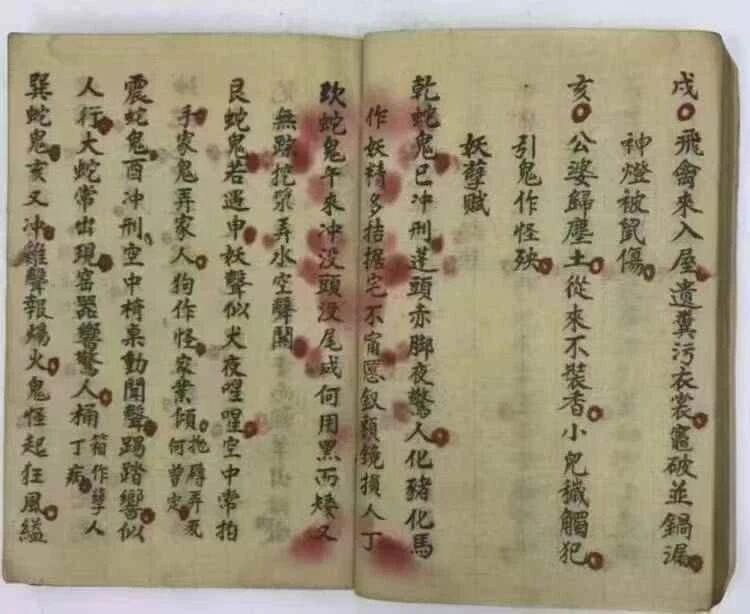 戌 飛禽來入屋遺糞污衣裳竈破並鍋漏
神燈被鼠傷
亥 公婆歸塵土從來不裝香小兒穢觸犯
引鬼作怪殃
妖孽賦
乾蛇鬼巳冲刑蓬頭赤脚夜驚人化豬化馬
作妖精多拮据宅不甯慝釵頭鏡損人丁
坎蛇鬼午來冲没頭没尾成何用黑而矮又
無踪挖漿弄水空聲鬧
艮蛇鬼若遇申妖聲似犬夜哩哩空中常拍
手家鬼弄家人狗作怪家業傾拋磚弄瓦何曾定
震蛇鬼酉冲刑空中椅桌動聞聲踢踏響似
人行大蛇常出現窑器響驚人桶箱作孽人丁病
巽蛇鬼亥又冲雞聲報煬火鬼怪起狂風縊